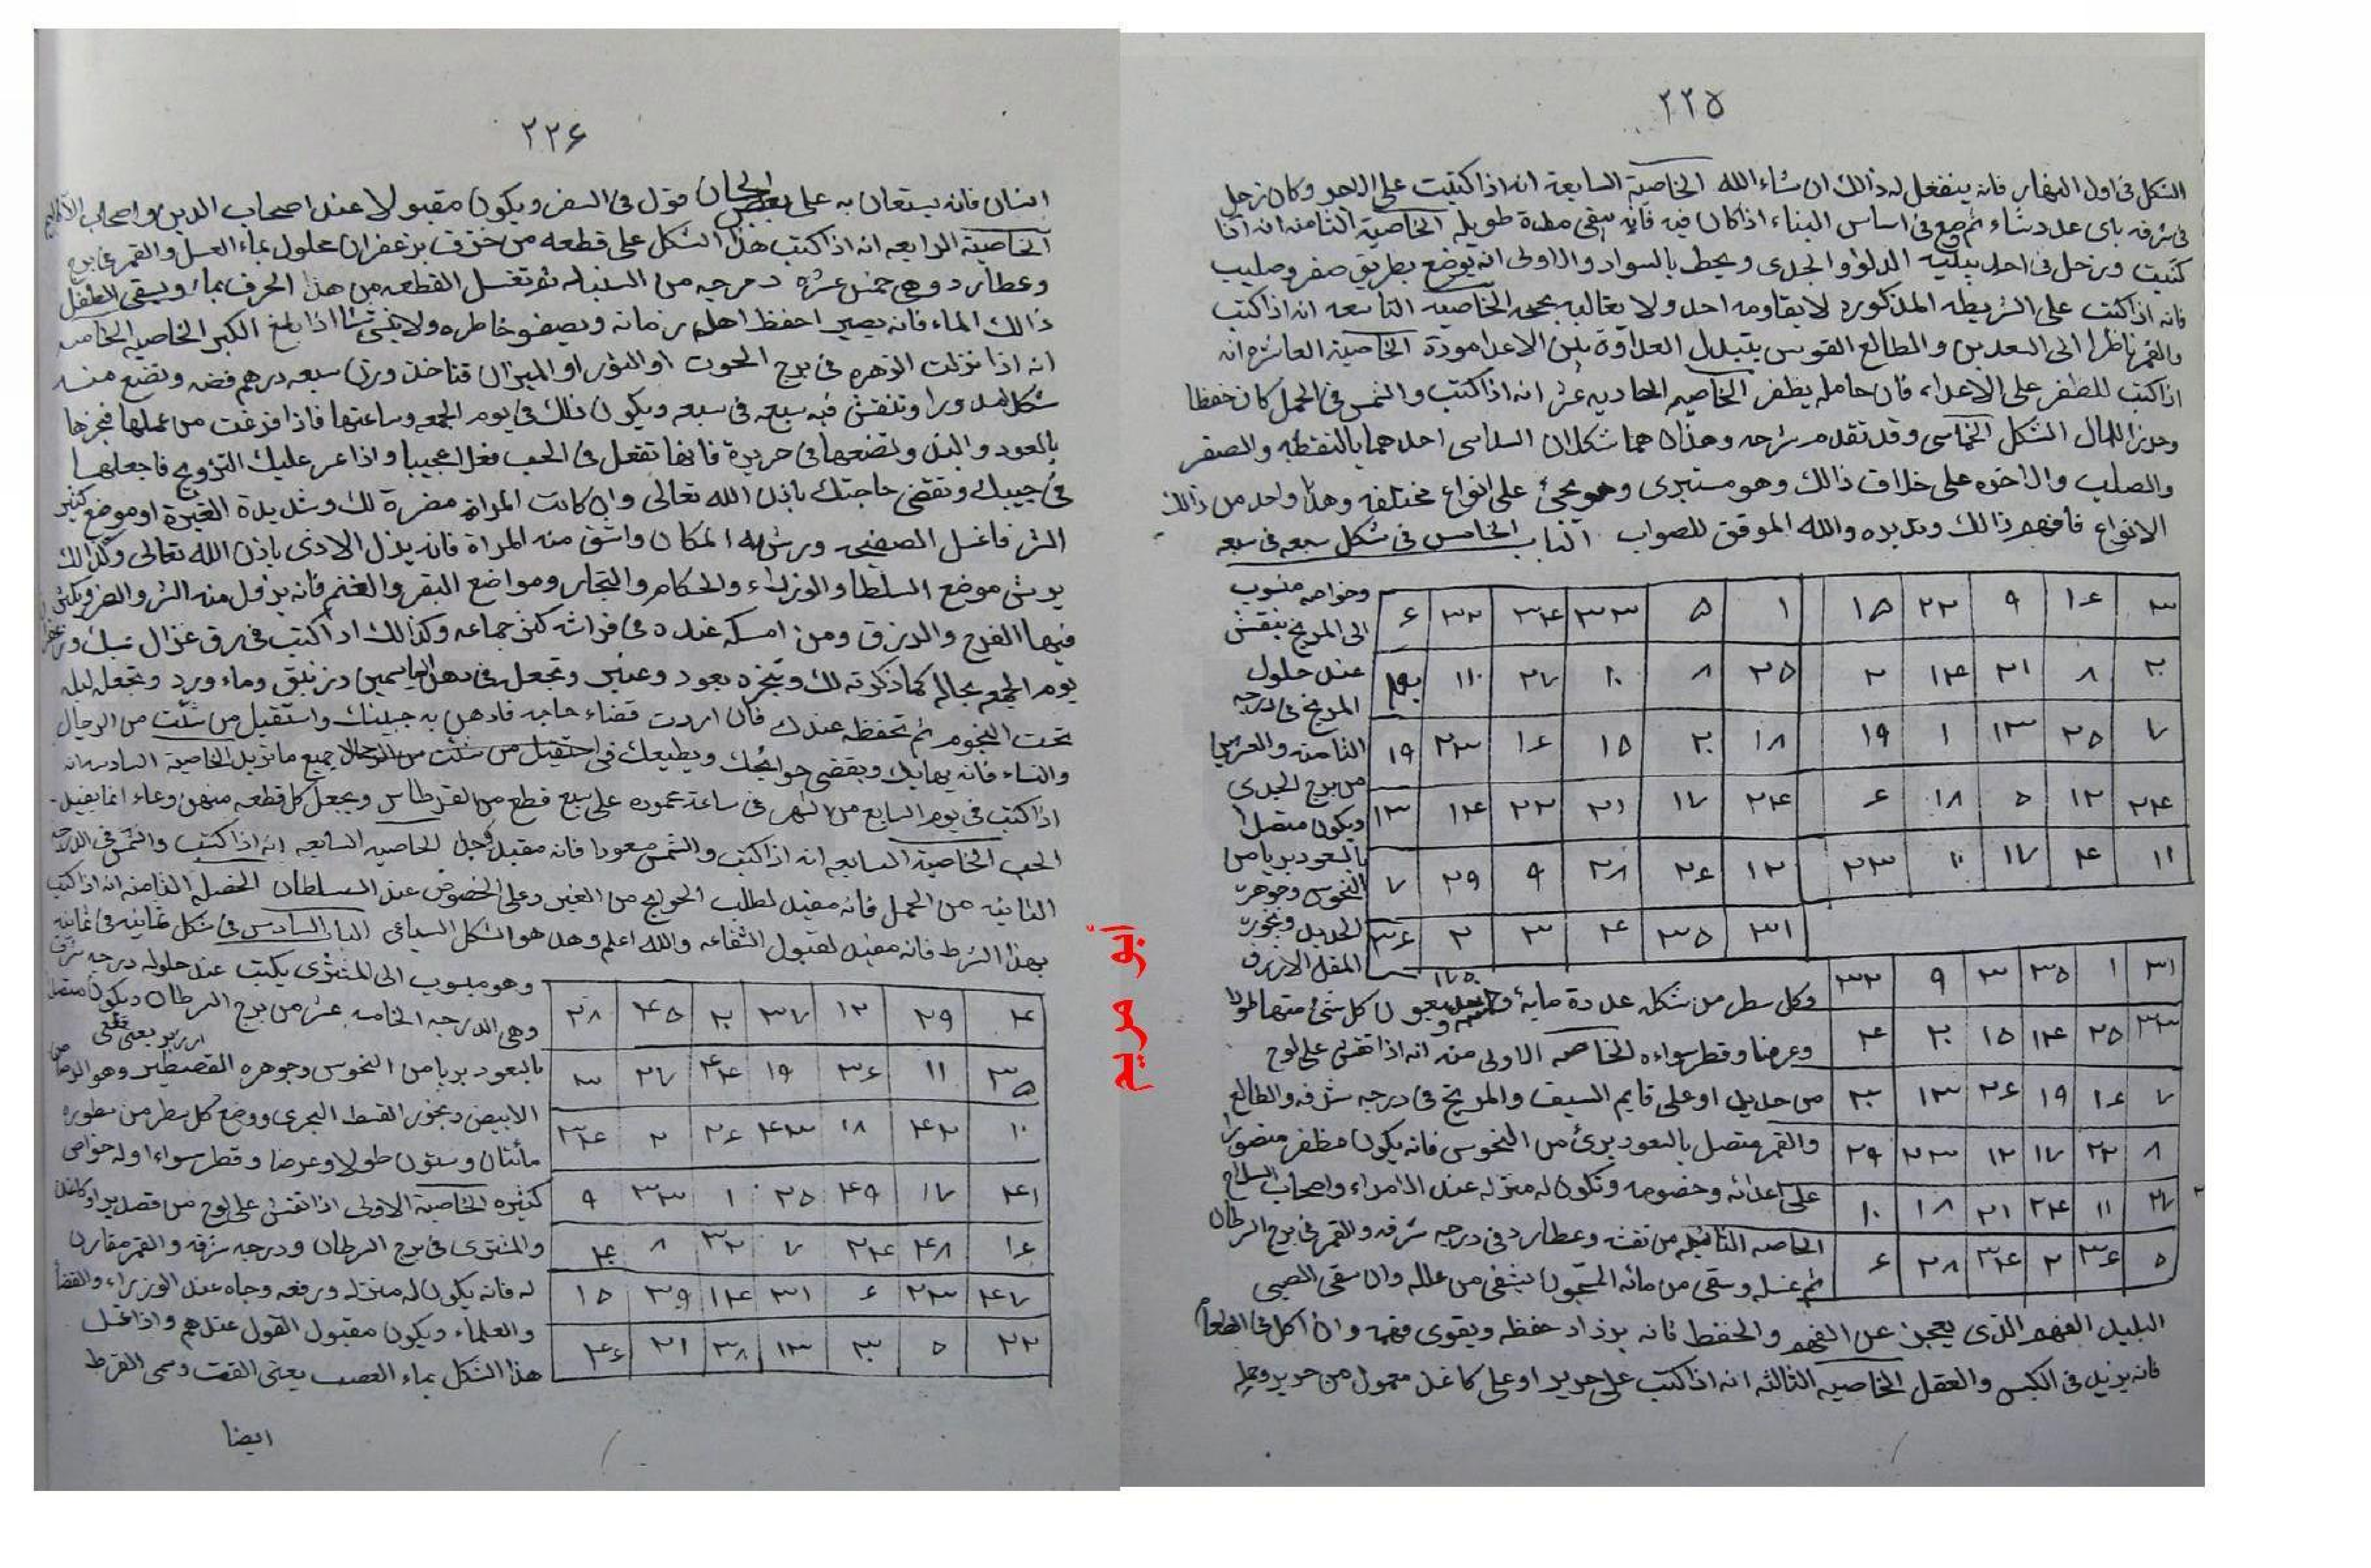 ٢٢٥
الشكل فى اول النهار فانه ينفعل له ذالك ان شاء الله الخاصية السابعة انه اذا كتبت على الحجر وكان زحل
فى شرفه باى عدد شاء ثم وضع فى اساس البناء اذا كان فيه فانه يبقى مدة طويله الخاصية الثامنه انه اذا
كتبت وزحل فى احد بيتيه الدلو والجدى ويحط بالسواد والاولى انه يوضع بطريق صفر وصليب
فانه اذا كتب على الشريطه المذكوره لا يقاومه احد ولا يغالبه بحجه الخاصيه التاسعه انه اذا كتب
والقمر ناظرا الى السعدين والطالع القوس يتبدل العداوة بين الاعدا مودة الخاصية العاشره انه
اذا كتب للظفر على الاعداء فان حامله يظفر الخاصيه الحاديه عشر انه اذا كتب والشمس فى الحمل كان حفظا
وحرزا للمال الشكل الخماسى وقد تقدم شرحه وهذان هما شكلان السداسى احدهما بالنقطه والصفر
والصلب والاخره على خلاف ذالك وهو مستبرى وهو يجئ على انواع مختلفه وهذا واحد من ذالك
الانواع فافهم ذالك وتدبره والله الموفق للصواب الباب الخامس فى شكل سبعه فى سبعه
٣ ١٦ ٩ ٢٢ ١٥
٢٠ ٨ ٢١ ١٤ ٢
٧ ٢٥ ١٣ ١ ١٩
٢٤ ١٢ ٥ ١٨ ٦
١١ ٤ ١٧ ١٠ ٢٣
١ ٥ ٣٣ ٣٤ ٣٢ ٦
٢٥ ٨ ١٠ ٢٧ ١١ ٣٠
١٨ ٢٠ ١٥ ١٦ ٢٣ ١٩
٢٤ ١٧ ٢١ ٢٢ ١٤ ١٣
١٢ ٢٦ ٢٨ ٩ ٢٩ ٧
٣١ ٣٥ ٤ ٣ ٢ ٣٦
وخواصه منسوب
الى المريخ ينقش
عند حلول
المريخ فى درجه
الثامنه والعشرين
من برج الجدى
ويكون متصلا
بالسعود بريا من
النحوس وجوهره
الحديد وبخوره
المقل الازرق
٣١ ١ ٣٥ ٣ ٩ ٣٢
٣٣ ٢٥ ١٤ ١٥ ٢٠ ٤
٧ ١٦ ١٩ ٢٦ ١٣ ٣٠
٨ ٢٢ ١٧ ١٢ ٢٣ ٢٩
٢٧ ١١ ٢٤ ٢١ ١٨ ١٠
٥ ٣٦ ٢ ٣٤ ٢٨ ٦
١٧٥
وكل سطر من شكله عددة مايه كل شئ منها طولا
وعرضا وقطر سواءه الخاصه الاولى منه انه اذا نقش على لوح
من حديد او على قايم السيف والمريخ فى درجه شرفه والطالع
والقمر متصل بالسعود برئ من النحوس فانه يكون مظفر منصورا
على اعدائه وخصومه وتكون له منزله عند الامراء واصحاب السلاح
الخاصه الثانيه من نقشه وعطارد فى درجه شرفه والقمر فى برج السرطان
ثم غسله وسقى من مائه المسجون يشفى من علله وان سقى الصبى
البليد الفهم الذى يعجز عن الفهم والحفظ فانه يزداد حفظه ويقوى فهمه وان اكل فى الطعام
فانه يزيد فى الكيس والعقل الخاصيه الثالثه انه اذا كتب على حرير او على كاغد معمول من حرير وحمله
أبو مريم
٢٢٦
انسان فانه يستعان به على قول فى السفر ويكون مقبولا عند اصحاب الدين واصحاب
الخاصية الرابعه انه اذا كتب هذا الشكل على قطعه من خزف بزعفران محلول بماء العسل والقمر فى برج
وعطارد وهى خمس عشره درجه من السنبله ثم تغسل القطعه من هذا الخزف بماء ويسقى الطفل
ذالك الماء فانه يصير احفظ اهل زمانه ويصفو خاطره ولا ينسى شئا اذا بلغ الكبر الخاصيه الخامسه
انه اذا نزلت الزهره فى برج الحوت او الثور او الميزان فتاخذ وزن سبعه درهم فضه وتصنع منه
شكل مدورا وتنقش فيه سبعه فى سبعه ويكون ذلك فى يوم الجمعه وساعتها فاذا فرغت من عملها فبخرها
بالعود والند وتضعها فى حريرة فانها تفعل فى الحب فعلا عجيبا واذا عسر عليك التزويج فاجعلها
فى جيبك وتقضى حاجتك باذن الله تعالى وان كانت المراة مضرة لك وشديدة الغيرة او موضع كثير
الشر فاغسل الصفيحه ورش به المكان واسق منه المراة فانه يزل الاذى باذن الله تعالى وكذالك
يرش موضع السلطا والوزراء والحكام والتجار ومواضع البقر والغنم فانه يزول منه الشر والضر ويكثر
فيها الفرح والرزق ومن امسكه عنده فى فراشه كثر جماعه وكذالك اذا كتب فى رق غزال
يوم الجمعه بحاله كما ذكرته لك وبخره بعود وعنبر وتجعل فى دهن الياسمين وزنبق وماء ورد وتجعل ليله
تحت النجوم ثم تحفظه عندك فان اردت قضاء حاجه فادهن به جبينك واستقبل من شئت من الرجال
والنساء فانه يهابك ويقضى حوائجك ويطيعك فى جميع ما تريد الخاصية السادسه انه
اذا كتب فى يوم السابع من الشهر فى ساعة عموده على سبع قطع من القرطاس ويجعل كل قطعه منهن وعاء انما يفيد
الحب الخاصية السابعه انه اذا كتب والشمس مسعودا فانه مقبل الخاصيه السابعه انه اذا كتب والشمس فى الدرجه
الثانيه من الحمل فانه مفيد لطلب الحوايج من الغير وعلى الخصوص عند السلطان الخصله الثامنه انه اذا كتب
بهذا الشرط فانه مفيد لقبول الشفاعه والله اعلم وهذا هو الشكل السباعى الباب السادس فى شكل ثمانيه فى ثمانيه
٤ ٢٩ ١٢ ٣٧ ٢٠ ٤٥ ٢٨
٣٥ ١١ ٣٦ ١٩ ٤٤ ٢٧ ٣
١٠ ٤٢ ١٨ ٤٣ ٢٦ ٢ ٣٤
٤١ ١٧ ٤٩ ٢٥ ١ ٣٣ ٩
١٦ ٤٨ ٢٤ ٧ ٣٢ ٨ ٤٠
٤٧ ٢٣ ٦ ٣١ ١٤ ٣٩ ١٥
٢٢ ٥ ٣٠ ١٣ ٣٨ ٢١ ٤٦
وهو منسوب الى المشترى يكتب عند حلوله درجه شرفه
وهى الدرجه الخامسه عشر من برج السرطان ويكون متصل
بالسعود بريا من النحوس وجوهره القصطير وهو الرصاص
الابيض وبخور القسط البحرى ووضع كل سطر من سطوره
مأئتان وستون طولا وعرضا وقطر سواءا وله خواص
كثيره الخاصية الاولى اذا نقش على لوح من قصدير او كاغد
والمشترى فى برج السرطان ودرجه شرفه والقمر مقارن
له فانه يكون له منزله ورفعه وجاه عند الوزراء والقضاة
والعلماء ويكون مقبول القول عندهم واذا غسل
هذا الشكل بماء القصب يعنى القت وسمى القرط
ايضا